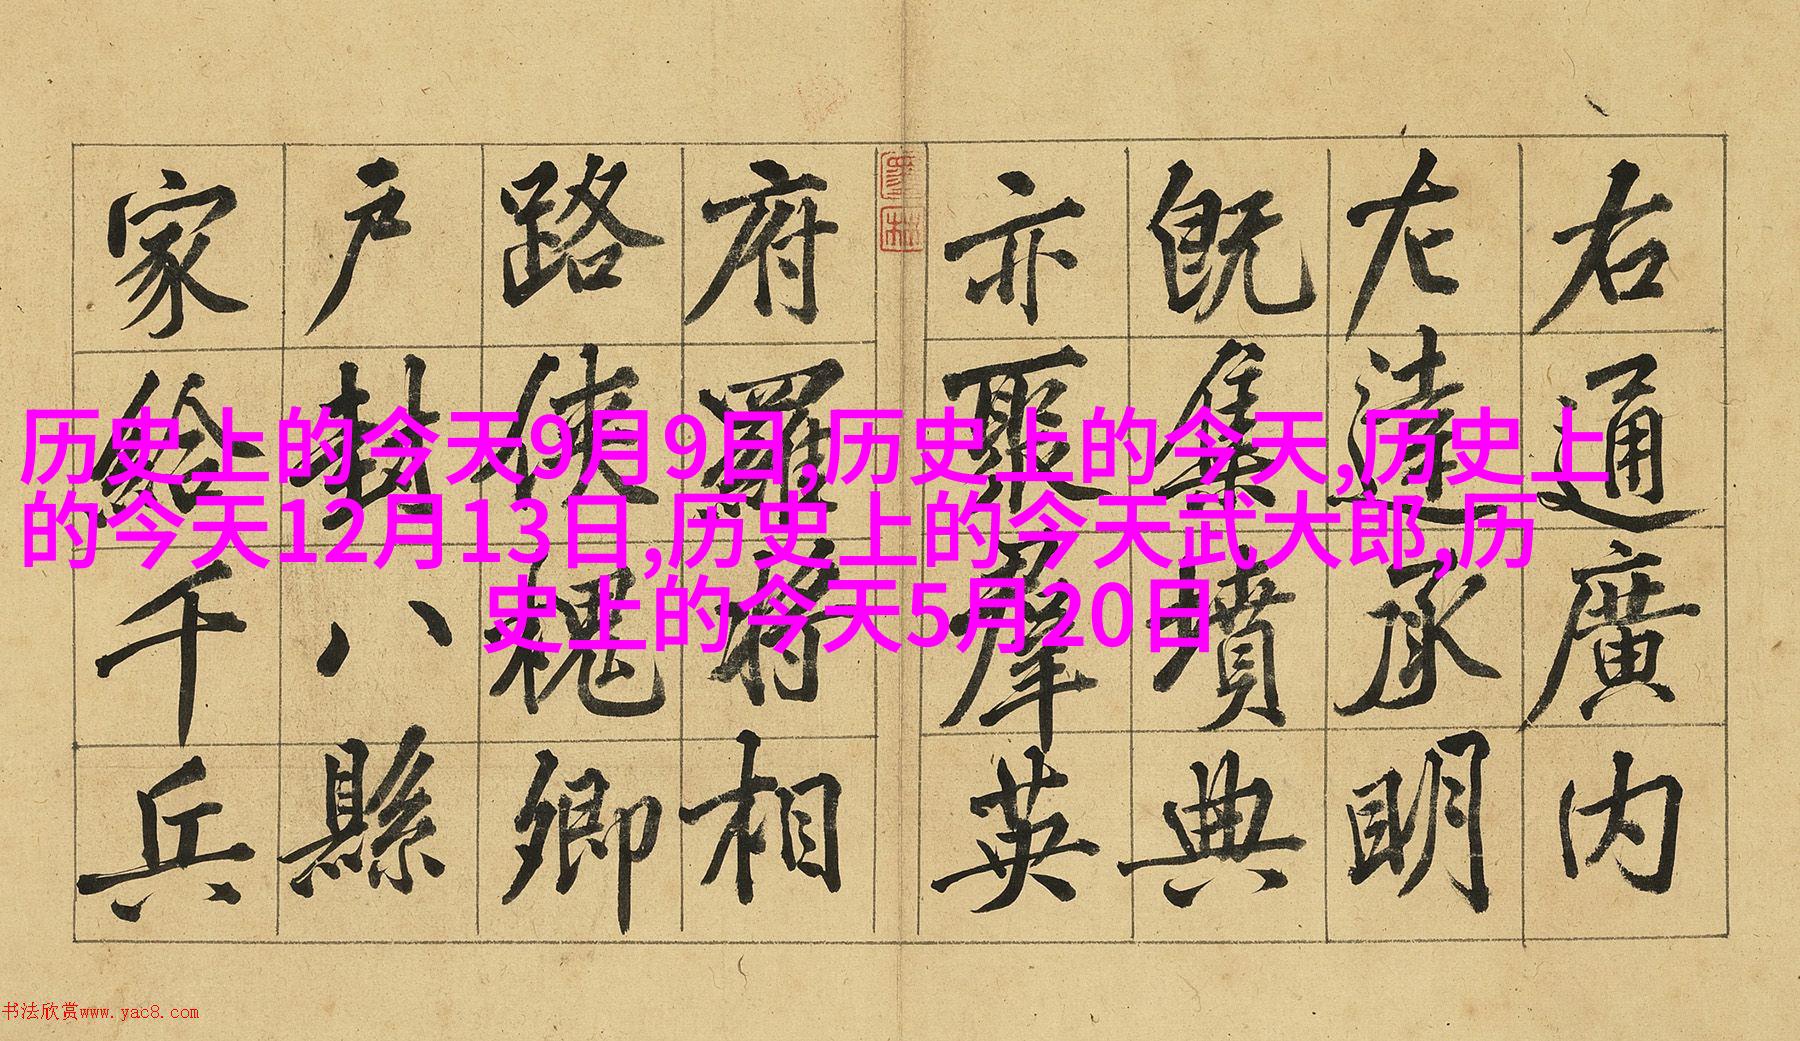 右通廣内
左達承明
既集墳典
亦聚羣英
府羅將相
路俠槐卿
户封八縣
家給千兵
历史上的今天9月9日,历史上的今天,历史上
的今天12月13日,历史上的今天武大郎,历
史上的今天5月20日
书法欣赏www.yac8.com